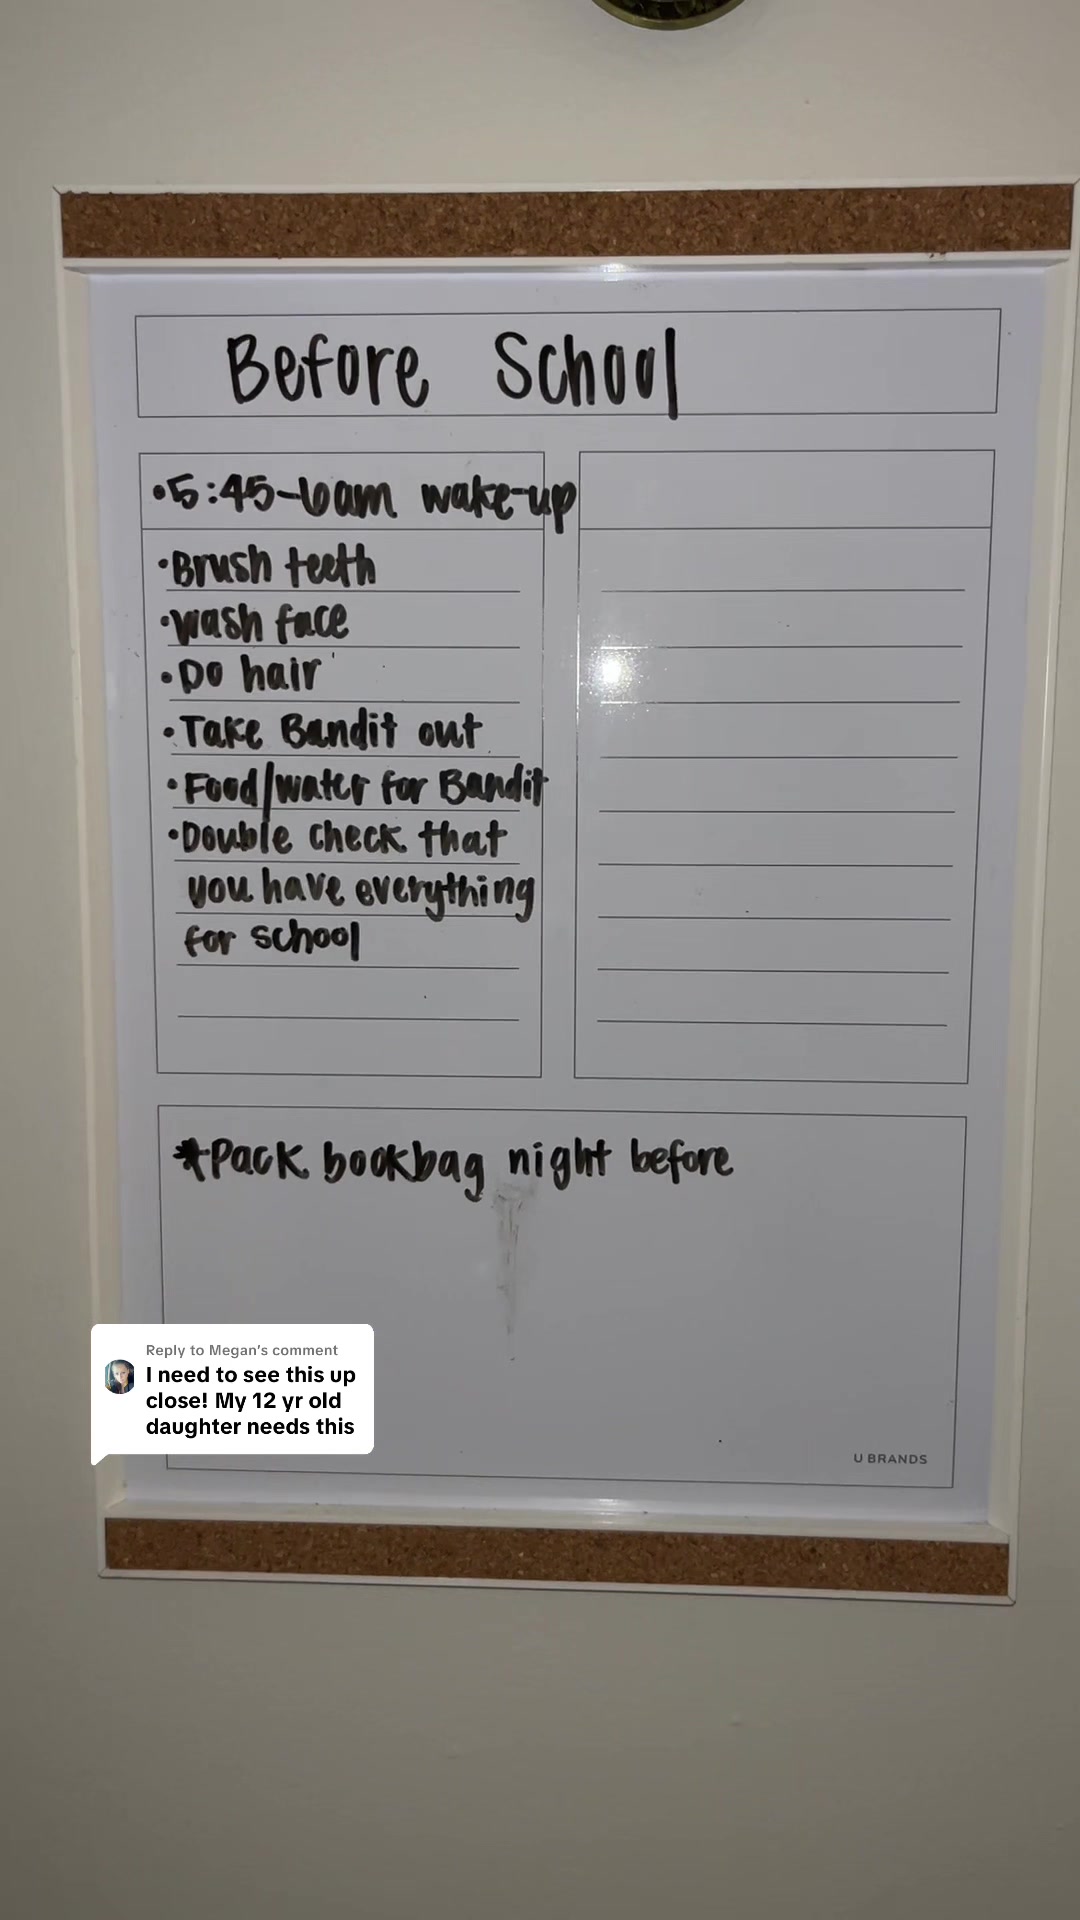 Before School
•5:45-6am wake-up
•Brush teeth
•wash face
•Do hair
•Take Bandit out
•Food/water for Bandit
•Double check that
you have everything
for school
*Pack bookbag night before
Reply to Megan's comment
I need to see this up
close! My 12 yr old
daughter needs this
U BRANDS